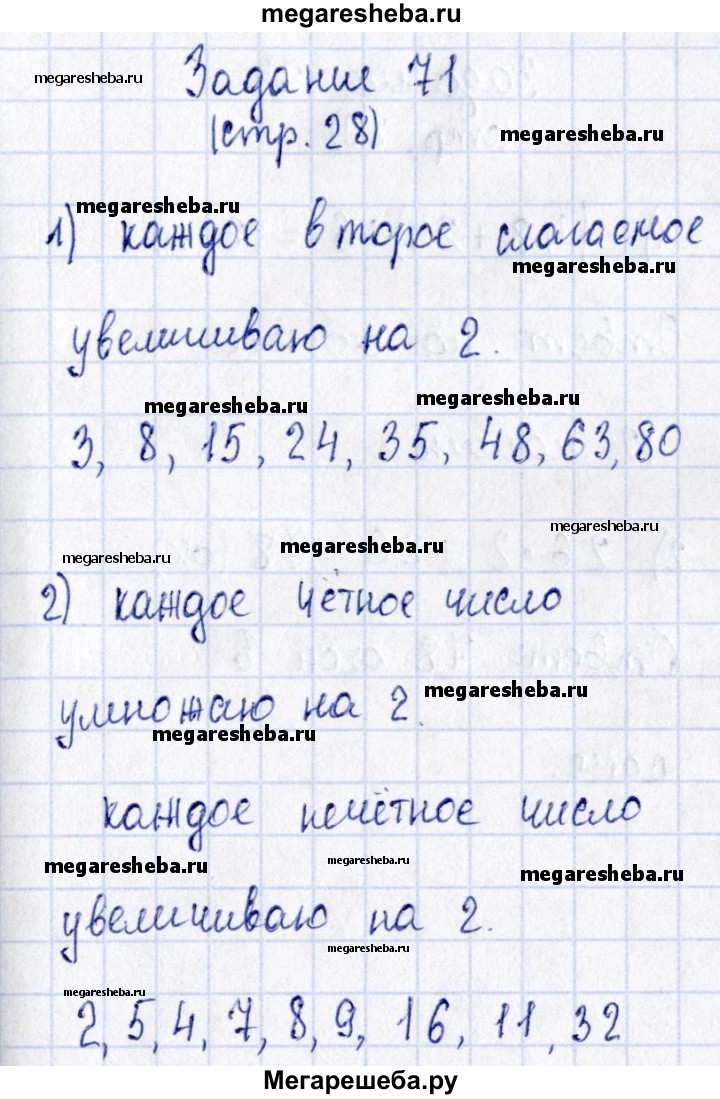 megaresheba.ru
megaresheba.ru
Задание 71
(стр. 28)
megaresheba.ru
megaresheba.ru
1) каждое второе слагаемое
megaresheba.ru
увеличиваю на 2.
megaresheba.ru
megaresheba.ru
3, 8, 15, 24, 35, 48, 63, 80
megaresheba.ru
megaresheba.ru
megaresheba.ru
2) каждое чётное число
умножаю на 2.
megaresheba.ru
megaresheba.ru
каждое нечётное число
megaresheba.ru
megaresheba.ru
megaresheba.ru
увеличиваю на 2.
megaresheba.ru
megaresheba.ru
2, 5, 4, 7, 8, 9, 16, 11, 32
Мегарешеба.ру